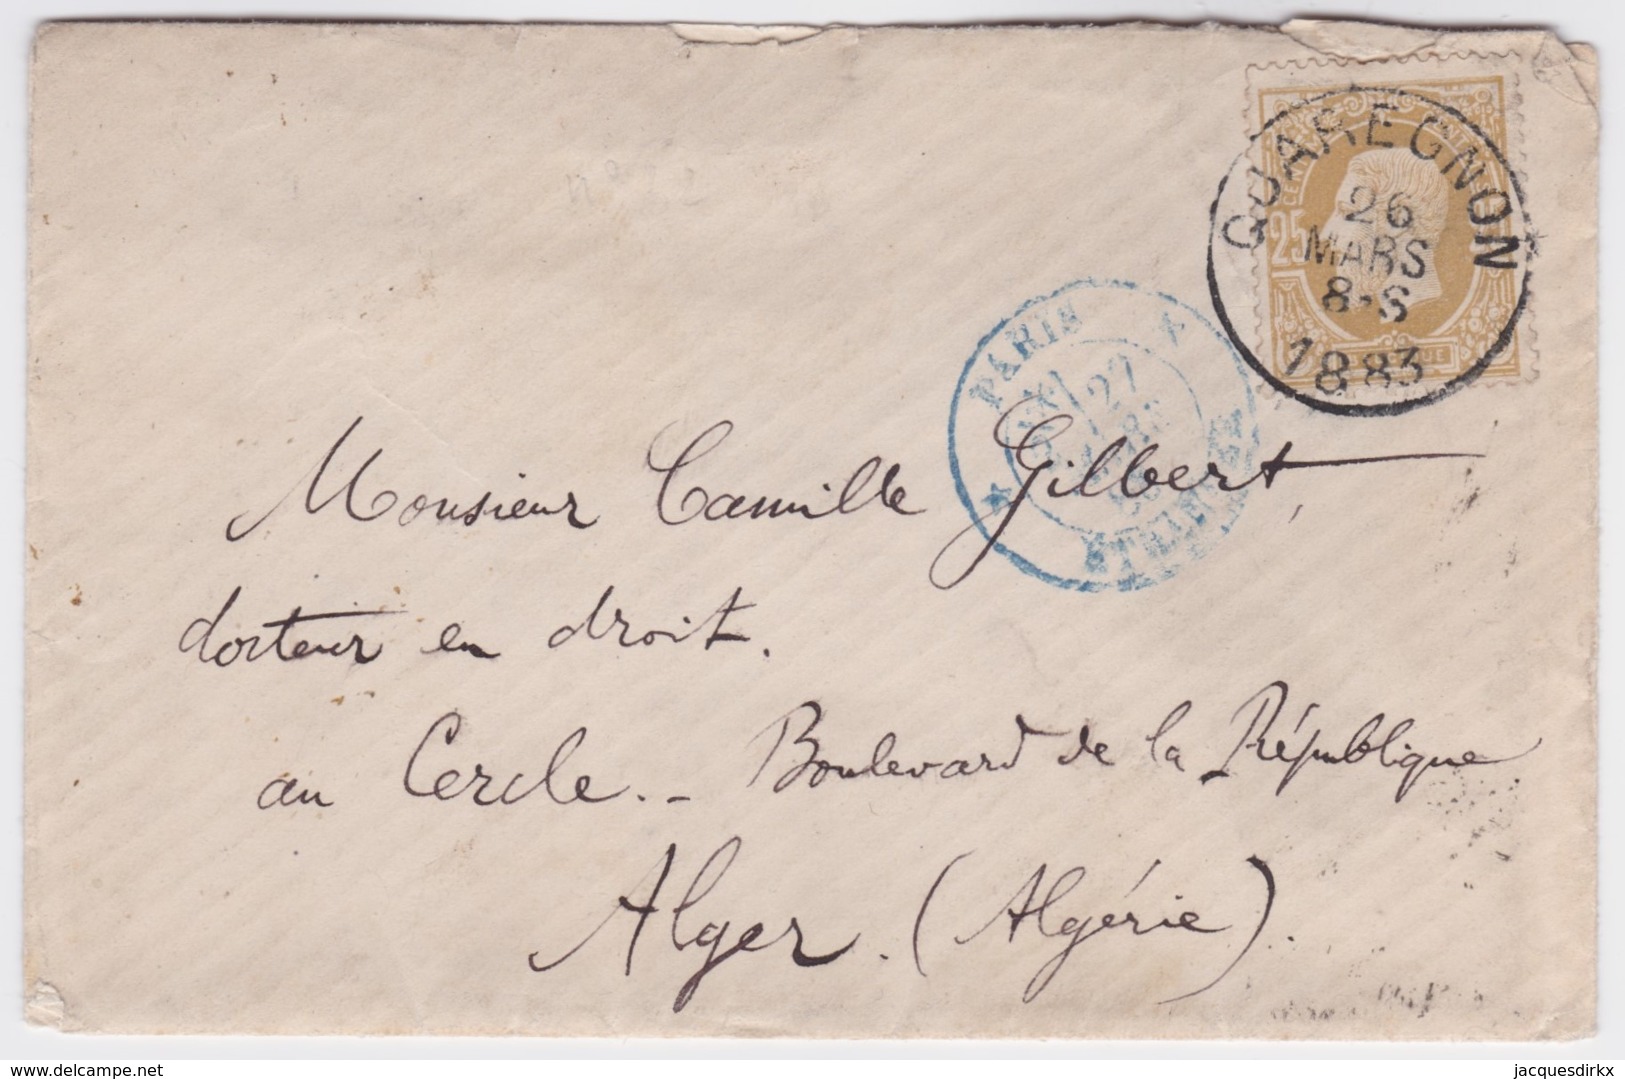 QUAREGNON
26
MARS
8-S
1883
25
25
PARIS
27
ETRANGER
Monsieur Camille Gilbert,
docteur en droit.
au Cercle.- Boulevard de la République
Alger. (Algérie).
jacquesdirkx